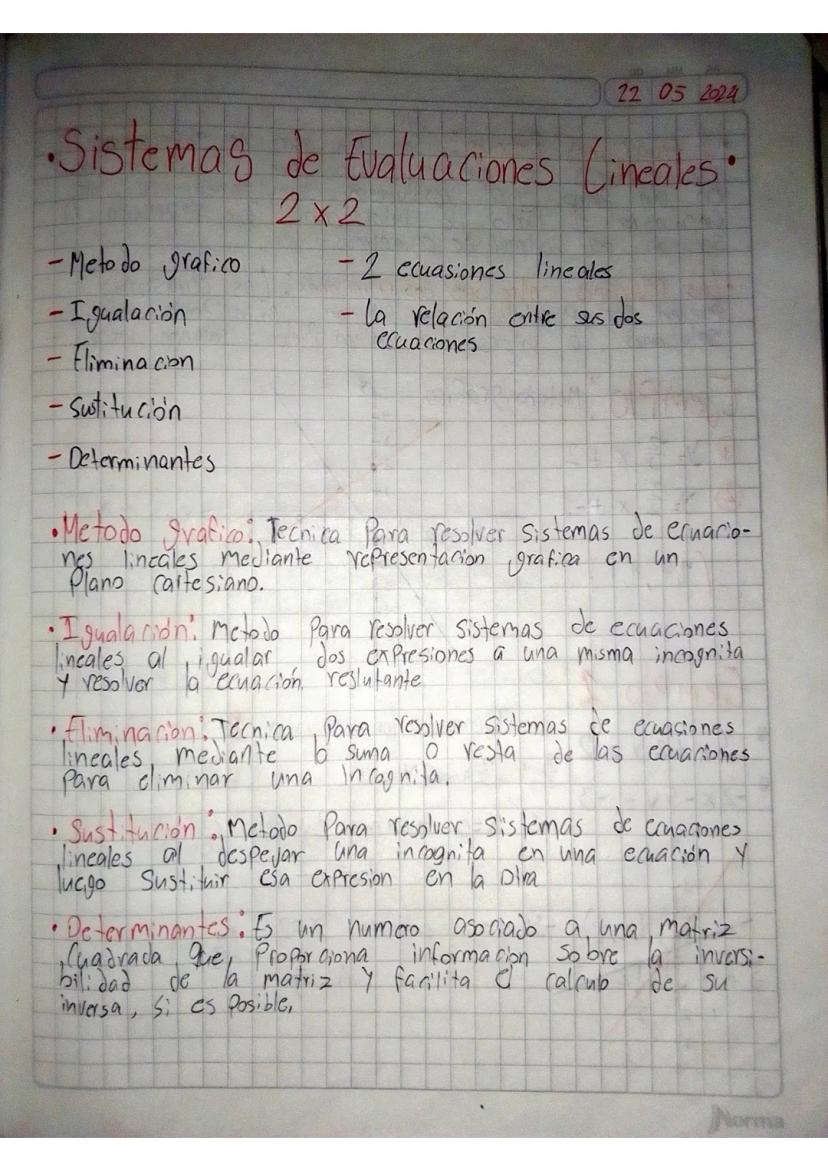 22 05 2024
• Sistemas de Evaluaciones Lineales •
2 x 2
- Metodo grafico
- Igualación
- Eliminacion
- Sustitución
- Determinantes
- 2 ecuasiones lineales
- la relación entre sus dos
ecuaciones
• Metodo grafico: Tecnica Para resolver sistemas de ecuacio-
nes lineales mediante representacion grafica en un
Plano cartesiano.
• Igualación: Metodo Para resolver sistemas de ecuaciones
lineales al igualar dos expresiones a una misma incognita
y resolver la ecuación reslutante
• Eliminacion: Tecnica Para resolver sistemas de ecuasiones
lineales, mediante la suma o resta de las ecuaciones
Para eliminar una incognita.
• Sustitución: Metodo Para resolver sistemas de ecuaciones
lineales al despejar una incognita en una ecuación y
luego sustituir esa expresion en la otra
• Determinantes: Es un numero asociado a una matriz
Cuadrada que, Proporciona informacion sobre la inversi-
bilidad de la matriz y facilita el calculo de su
inversa, si es posible,
Norma